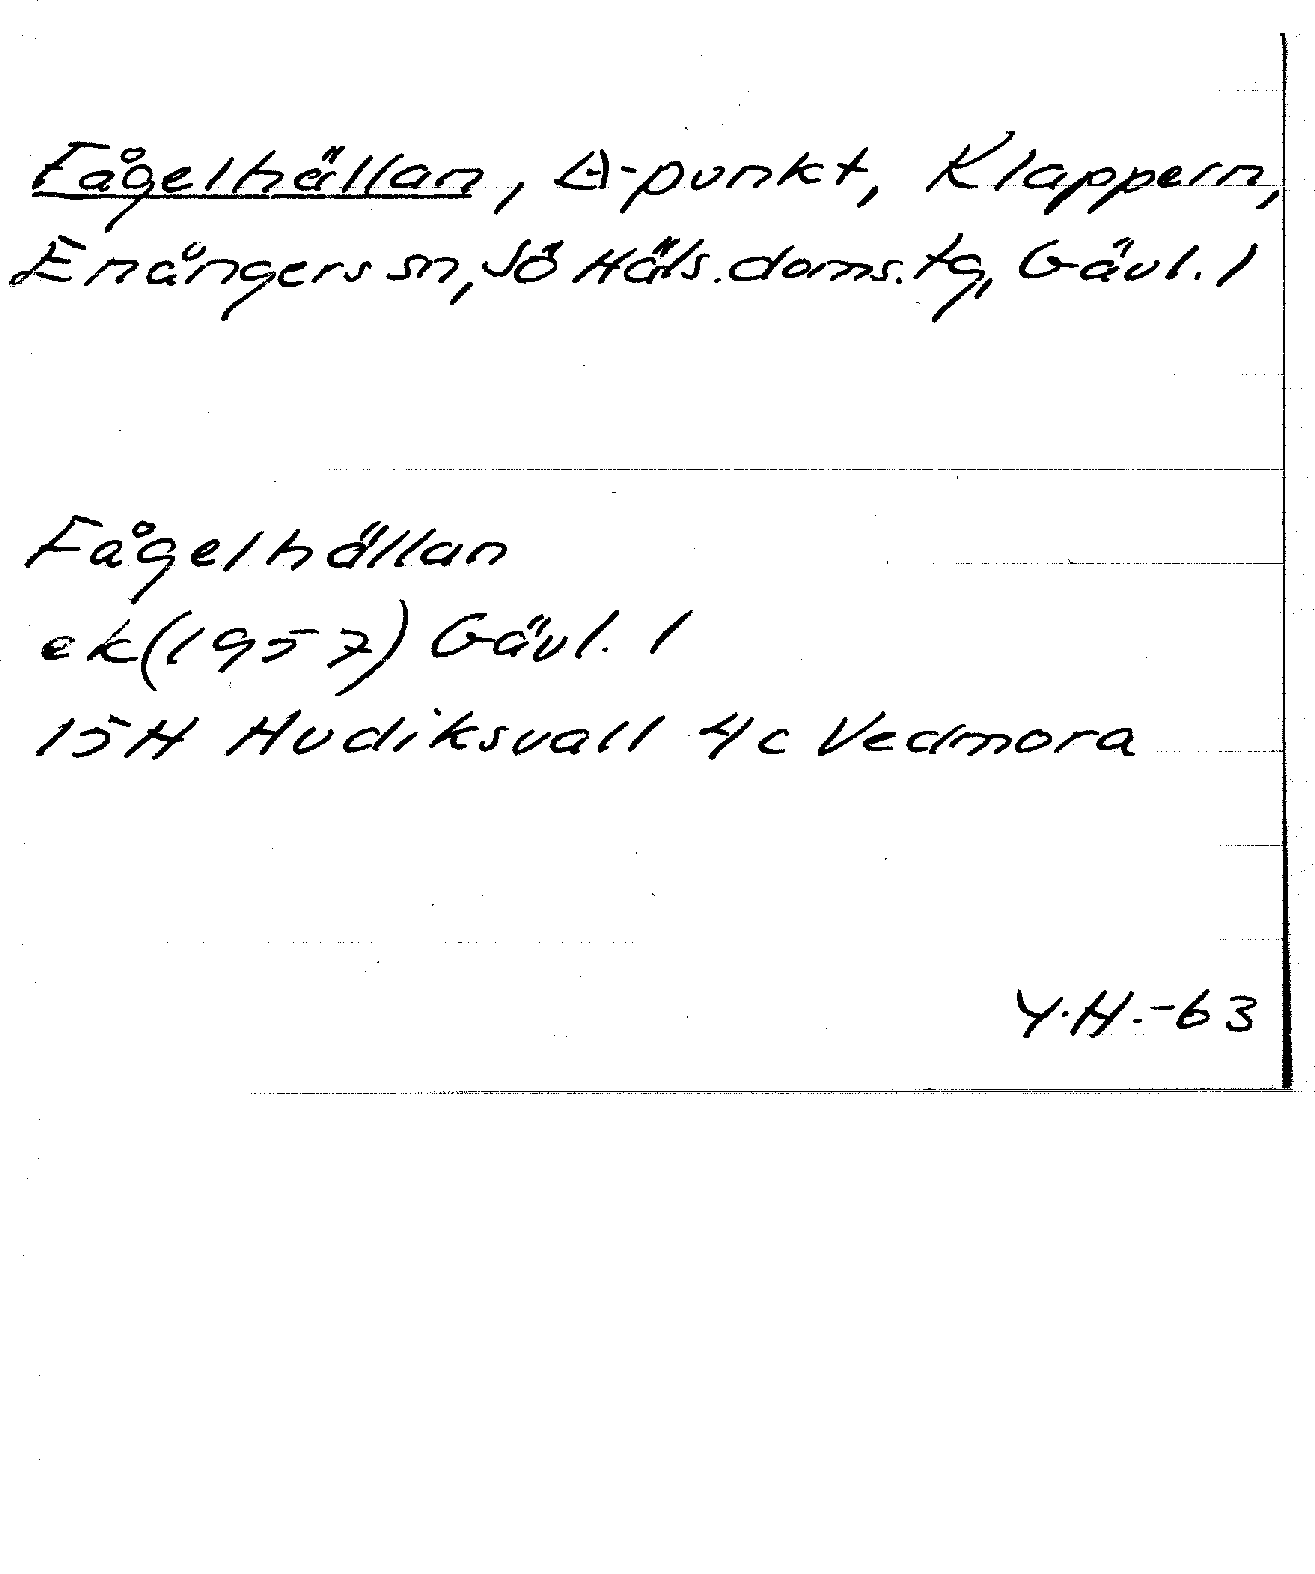 Fågelhällan, △-punkt, Klappern,
Enångers sn, Sö Häls. doms. tg, Gävl. l
Fågelhällan
ek (1957) Gävl. l
15H Hudiksvall 4c Vedmora
Y.H. -63